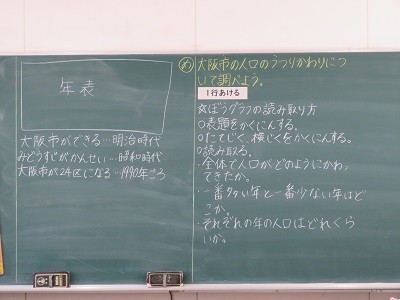 年表
大阪市ができる…明治時代
みどうすじがかんせい…昭和時代
大阪市が24区になる…1990年ごろ
め 大阪市の人口のうつりかわりにつ
いて調べよう。
1行あける
☆ぼうグラフの読み取り方
○表題をかくにんする。
○たてじく、横じくをかくにんする。
○読み取る。
・全体で人口がどのようにかわっ
てきたか。
・一番多い年と一番少ない年はど
こか。
・それぞれの年の人口はどれくら
いか。